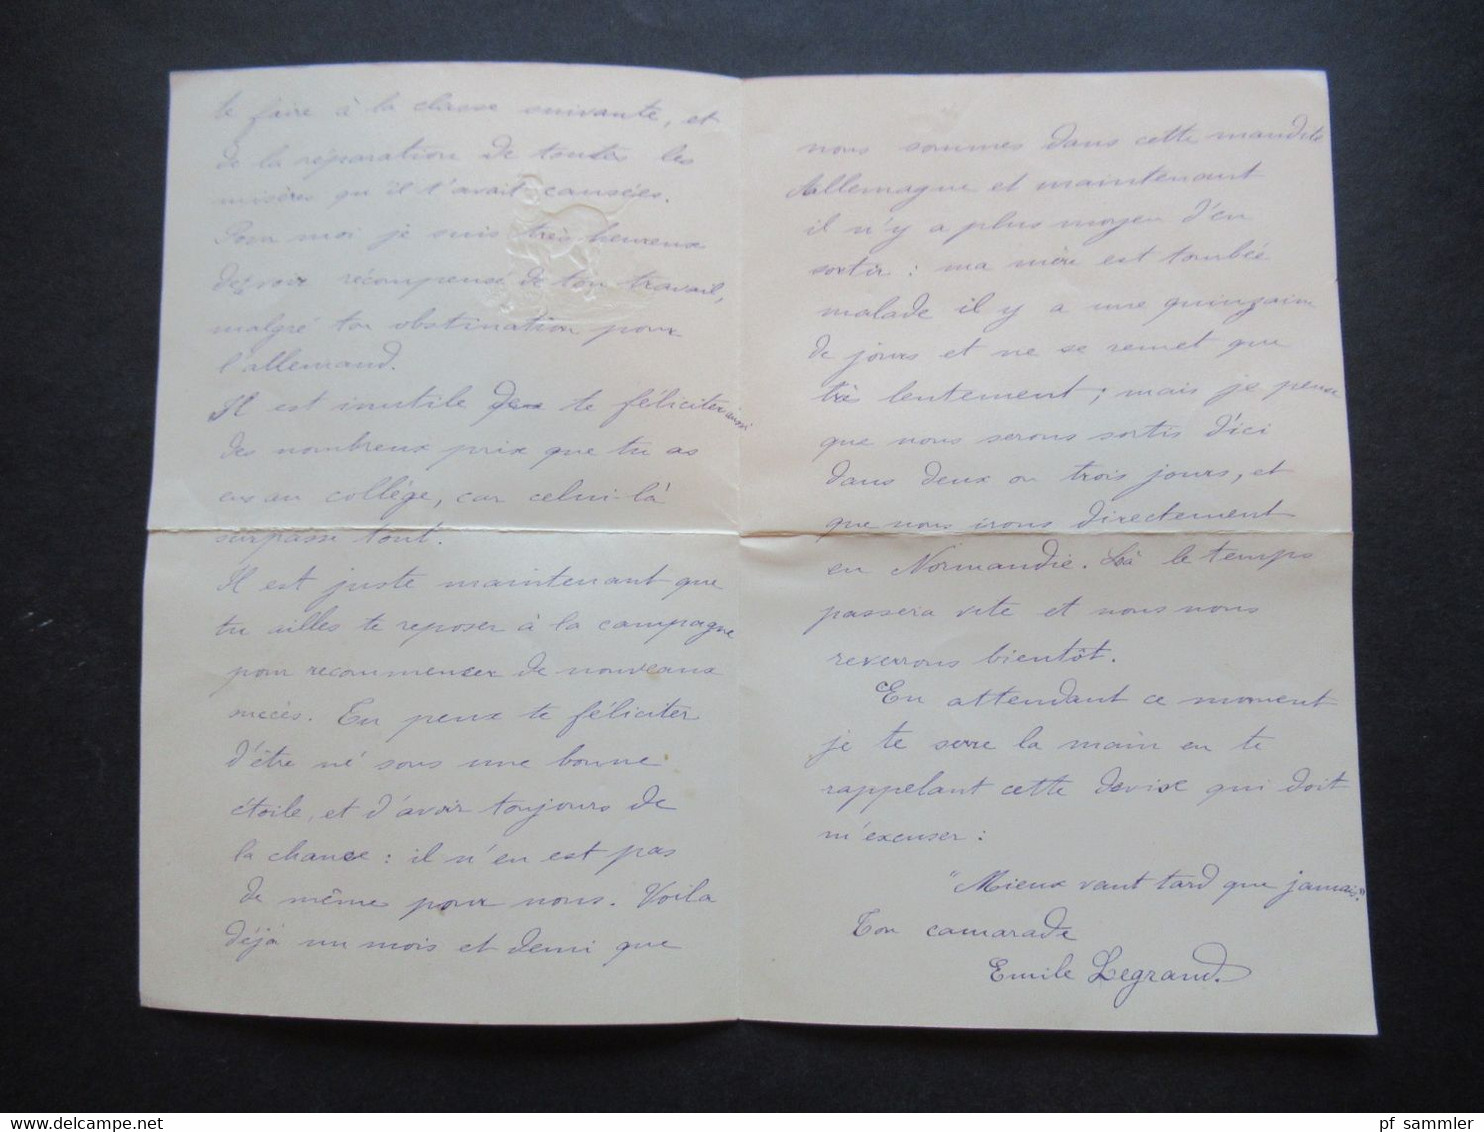 te faire à la classe suivante, et
de la réparation de toutes les
misères qu'il t'avait causées.
Pour moi je suis très heureux
de voir récompensé de ton travail,
malgré ton obstination pour
l'allemand.
Il est inutile de te féliciter aussi
des nombreux prix que tu as
eus au collège, car celui-là
surpasse tout.
Il est juste maintenant que
tu ailles te reposer à la campagne
pour recommencer de nouveaux
succès. Tu peux te féliciter
d'être né sous une bonne
étoile, et d'avoir toujours de
la chance : il n'en est pas
de même pour nous. Voila
déjà un mois et demi que
nous sommes dans cette maudite
Allemagne et maintenant
il n'y a plus moyen d'en
sortir : ma mère est tombée
malade il y a une quinzaine
de jours et ne se remet que
très lentement ; mais je pense
que nous serons sortis d'ici
dans deux ou trois jours, et
que nous irons directement
en Normandie. Là le temps
passera vite et nous nous
reverrons bientôt.
En attendant ce moment
je te serre la main en te
rappelant cette devise qui doit
m'excuser :
"Mieux vaut tard que jamais."
Ton camarade
Emile Legrand.
pf sammler
www.delcampe.net